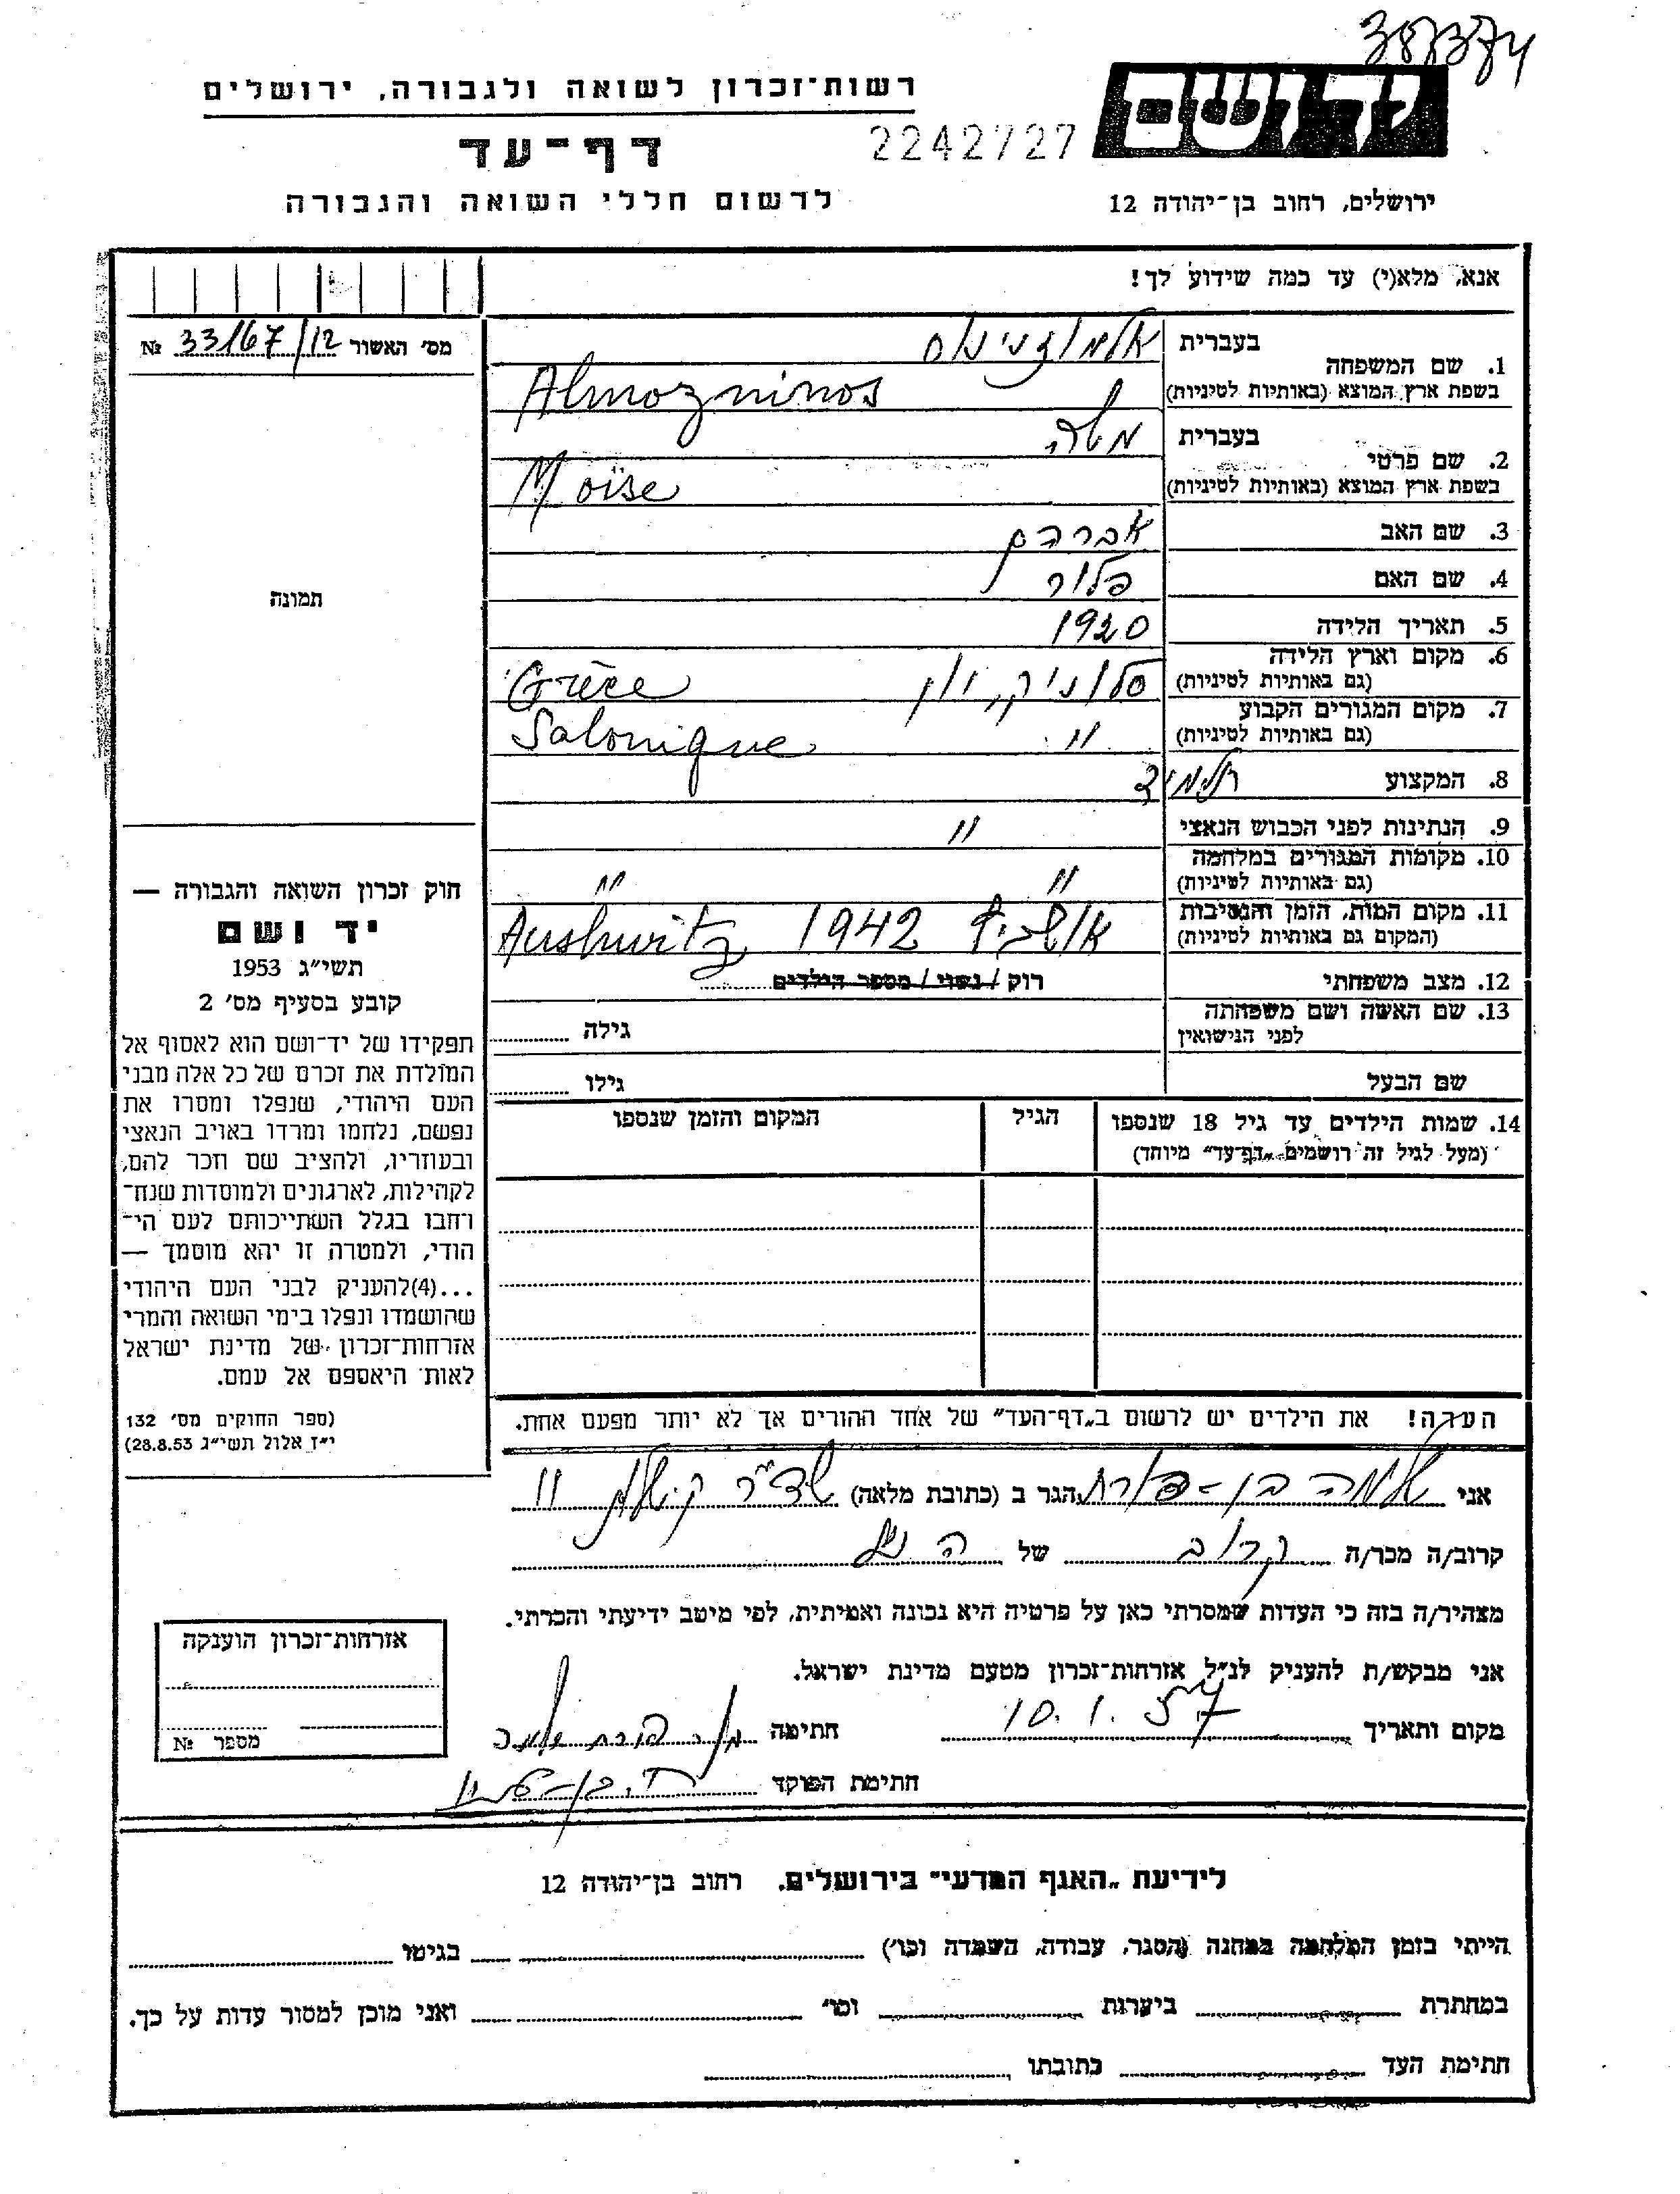 387374
רשות־זכרון לשואה ולגבורה, ירושלים
יד ושם
דף־עד
2242727
לרשום חללי השואה והגבורה
ירושלים, רחוב בן־יהודה 12
אנא, מלא(י) עד כמה שידוע לך!
מס׳ האשור 33167/12 №
1. שם המשפחה
בעברית אלמוזנינוס
בשפת ארץ המוצא (באותיות לטיניות) Almozninos
2. שם פרטי
בעברית משה
בשפת ארץ המוצא (באותיות לטיניות) Moïse
3. שם האב אברהם
4. שם האם פלור
5. תאריך הלידה 1920
6. מקום וארץ הלידה סלוניקי, יון Grèce
(גם באותיות לטיניות)
7. מקום המגורים הקבוע " Salonique
(גם באותיות לטיניות)
8. המקצוע תלמיד
9. הנתינות לפני הכבוש הנאצי "
10. מקומות המגורים במלחמה " "
(גם באותיות לטיניות)
11. מקום המות, הזמן והנסיבות אושביץ 1942 Aushwitz
(המקום גם באותיות לטיניות)
12. מצב משפחתי רוק / נשוי / מספר הילדים
13. שם האשה ושם משפחתה גילה
לפני הנישואין
שם הבעל גילו
תמונה
חוק זכרון השואה והגבורה —
יד ושם
תשי״ג 1953
קובע בסעיף מס׳ 2
תפקידו של יד־ושם הוא לאסוף אל
המולדת את זכרם של כל אלה מבני
העם היהודי, שנפלו ומסרו את
נפשם, נלחמו ומרדו באויב הנאצי
ובעוזריו, ולהציב שם וזכר להם,
לקהילות, לארגונים ולמוסדות שנח־
רחבו בגלל השתייכותם לעם הי־
הודי, ולמטרה זו יהא מוסמך —
...(4)להעניק לבני העם היהודי
שהושמדו ונפלו בימי השואה והמרי
אזרחות־זכרון של מדינת ישראל
לאות היאספם אל עמם.
(ספר החוקים מס׳ 132
י״ז אלול תשי״ג 28.8.53)
14. שמות הילדים עד גיל 18 שנספו הגיל המקום והזמן שנספו
(מעל לגיל זה רושמים „דף־עד” מיוחד)
הערה! את הילדים יש לרשום ב„דף־העד” של אחד ההורים אך לא יותר מפעם אחת.
אני שלמה בן-פורת הגר ב (כתובת מלאה) שד״ר
קרוב/ה מכר/ה קרוב של הנ״ל
מצהיר/ה בזה כי העדות שמסרתי כאן על פרטיה היא נכונה ואמיתית, לפי מיטב ידיעתי והכרתי.
אני מבקש/ת להעניק לנ״ל אזרחות־זכרון מטעם מדינת ישראל.
מקום ותאריך 10.1.57 חתימה בן פורת שלמה
חתימת הפוקד
אזרחות־זכרון הוענקה
מספר №
לידיעת „האגף המדעי” בירושלים. רחוב בן־יהודה 12
הייתי בזמן המלחמה במחנה (הסגר, עבודה, השמדה וכו׳) בגיטו
במחתרת ביערות וכו׳ ואני מוכן למסור עדות על כך.
חתימת העד כתובתו